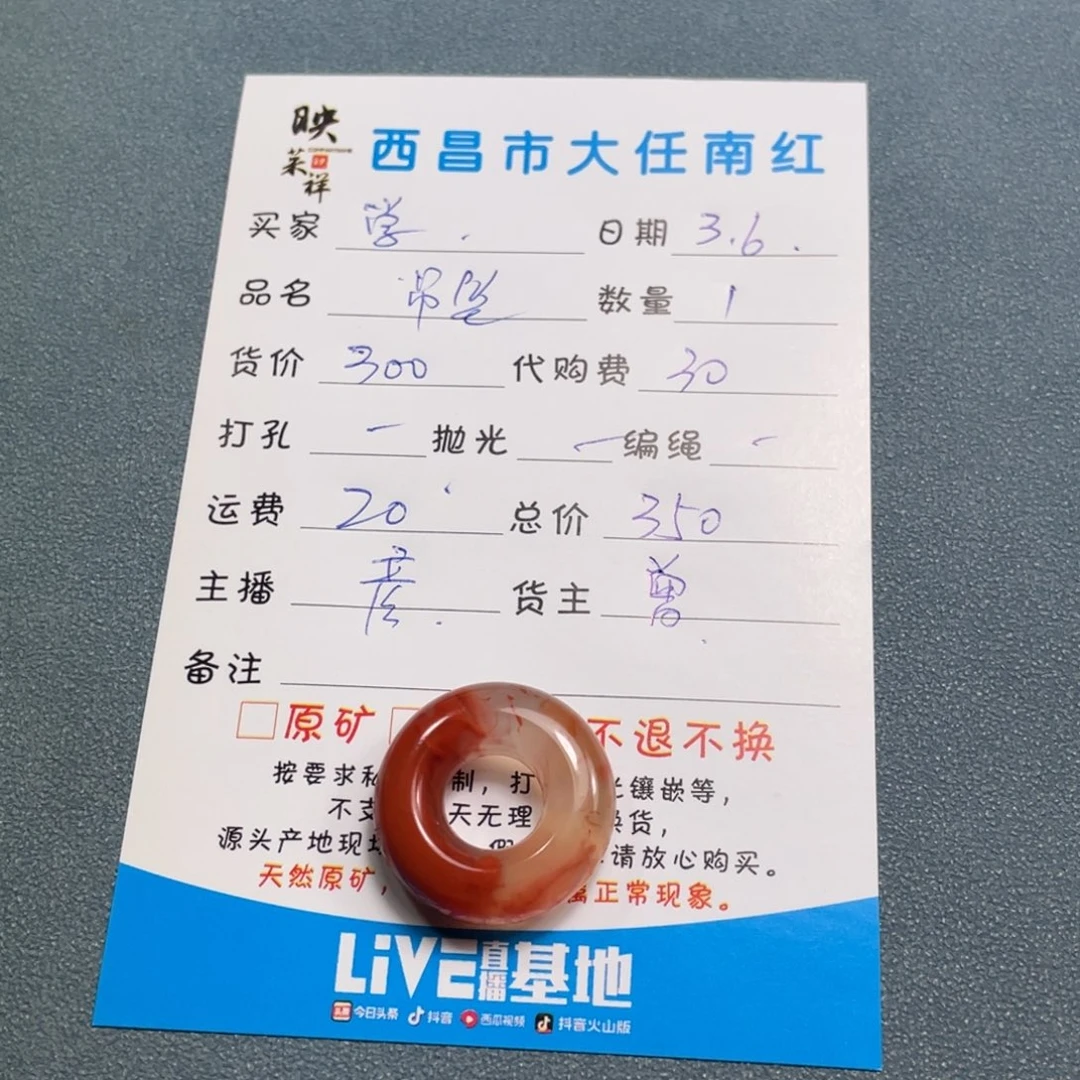 映
菜祥
西昌市大任南红
买家 学 . 日期 3.6.
品名 吊坠 数量 1
货价 300 代购费 30
打孔 一 抛光 一 编绳 -
运费 20 总价 350
主播 彦. 货主 曾
备注
原矿 不退不换
按要求 制，打 镶嵌等，
不支 天无理 换货，
源头产地现场 请放心购买。
天然原矿， 属正常现象。
LiVE直播基地
今日头条 抖音 西瓜视频 抖音火山版